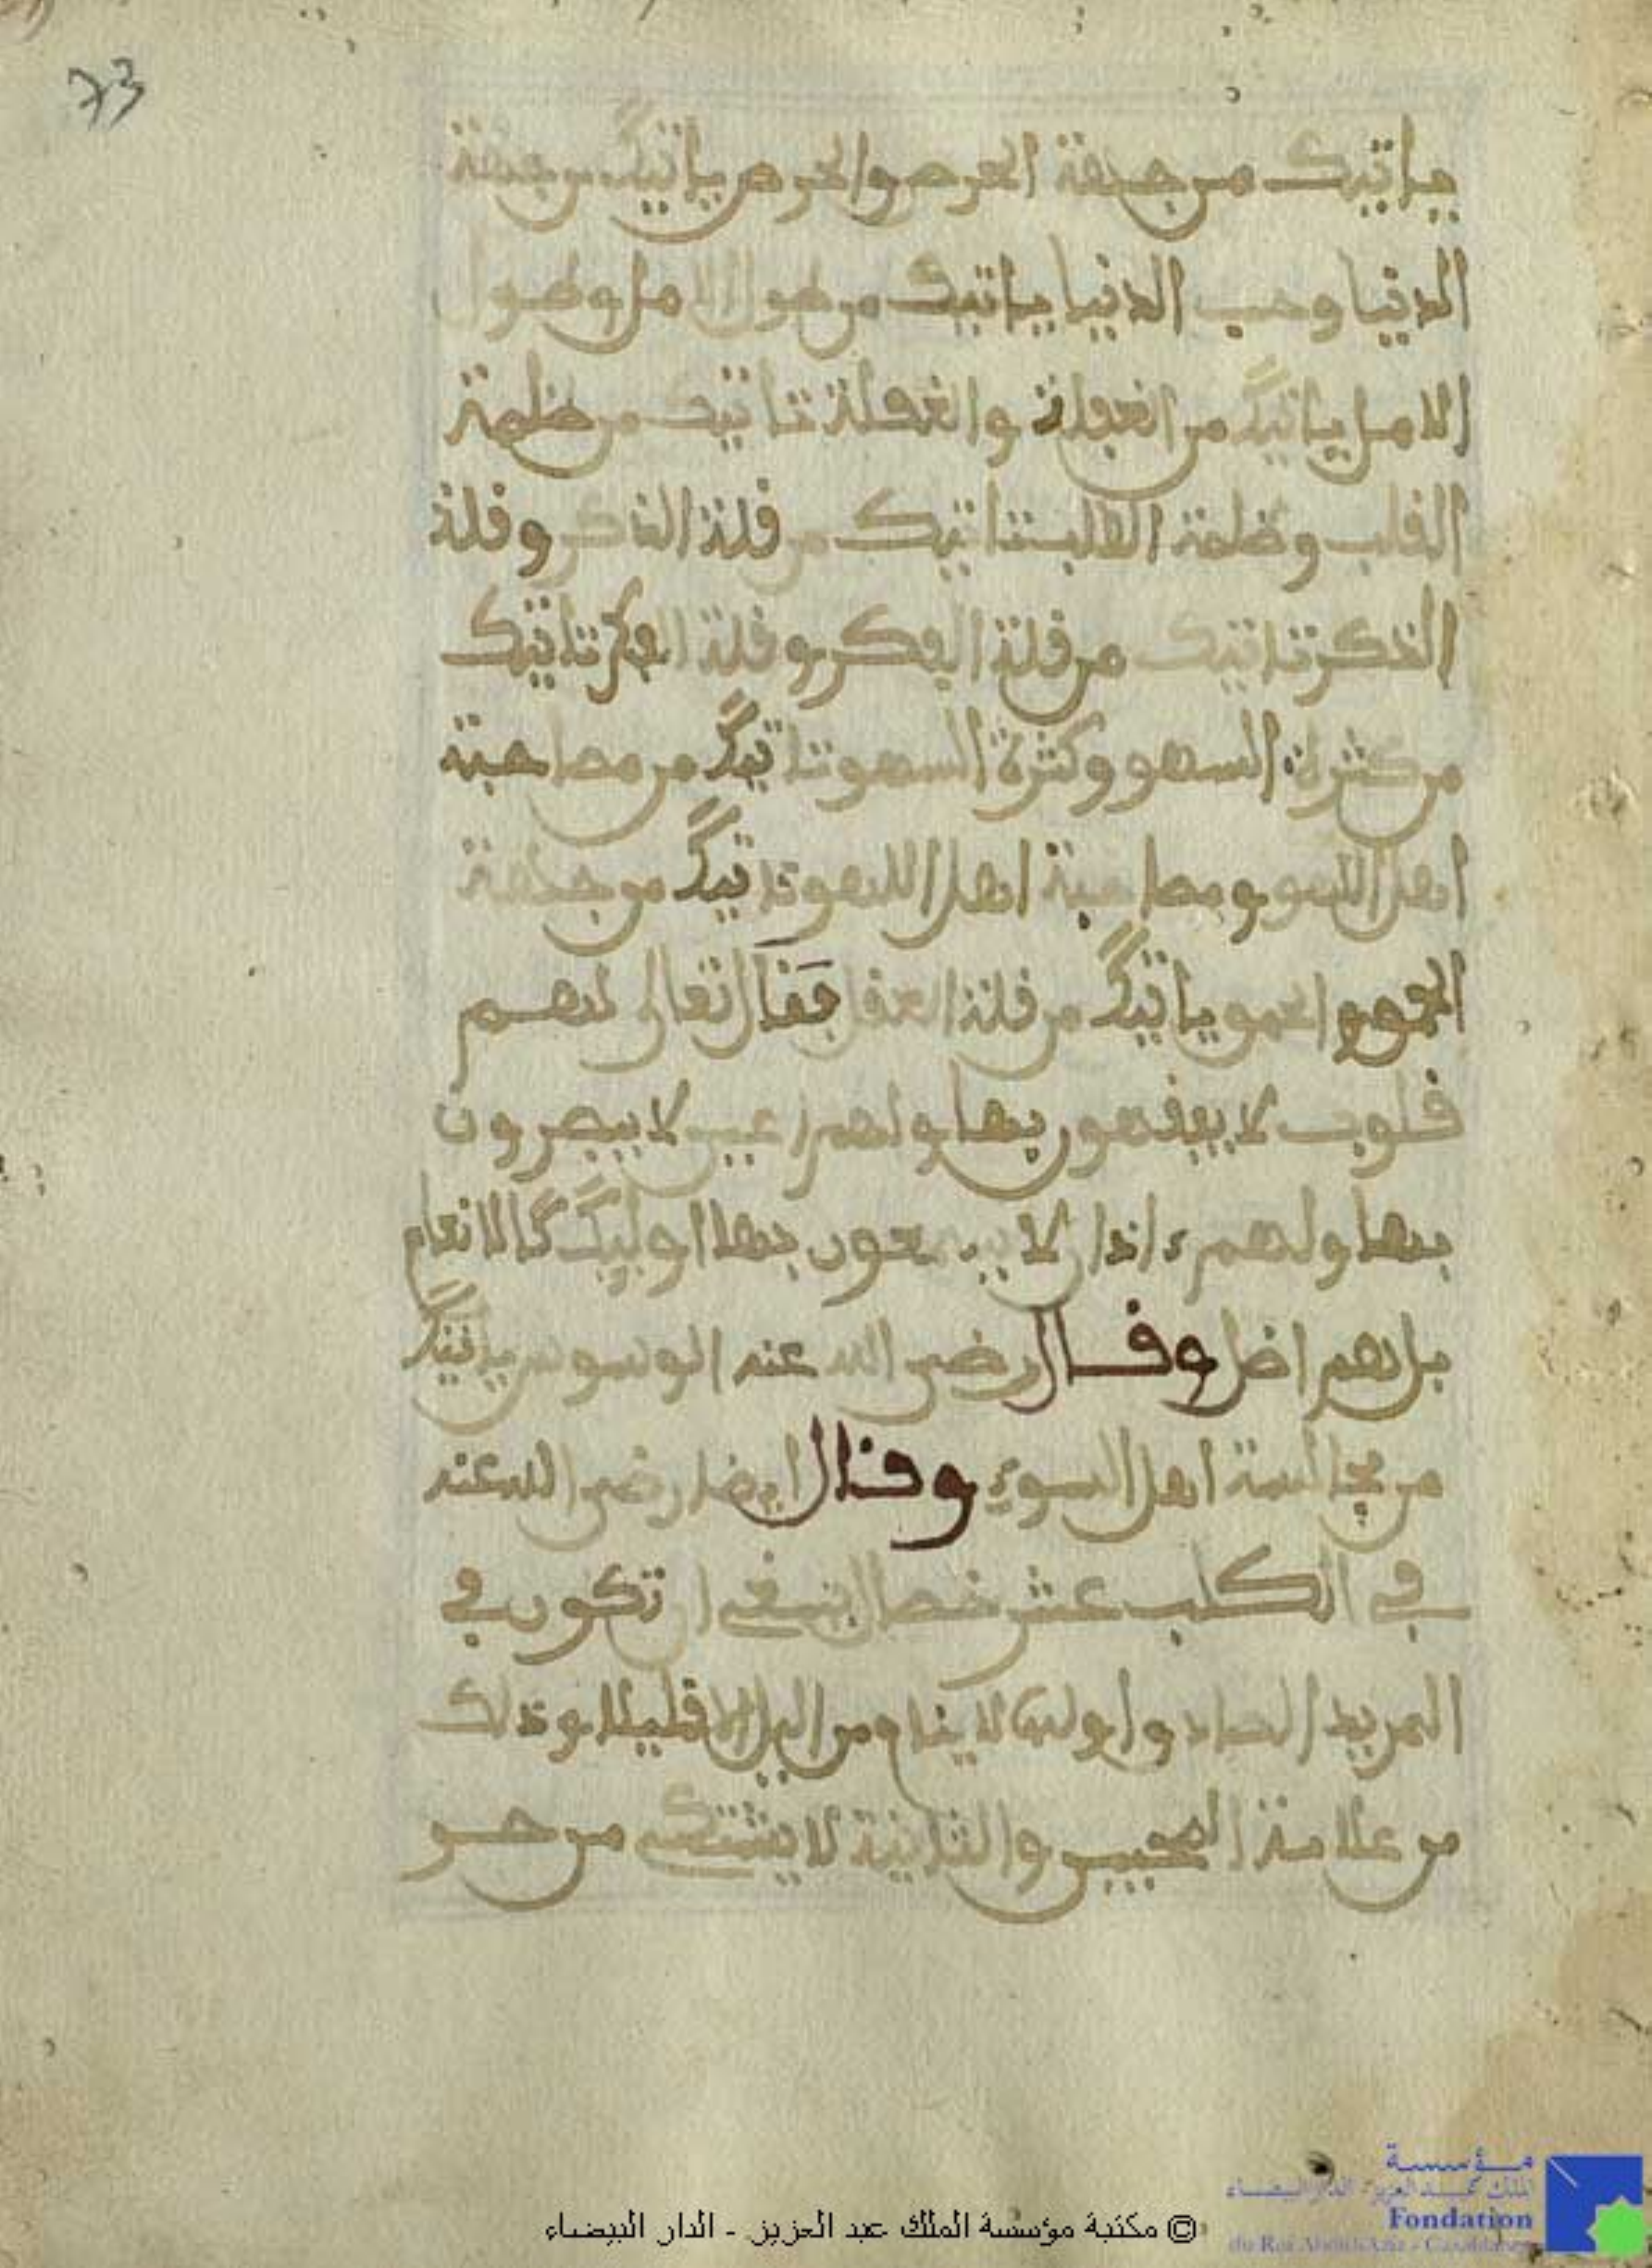 73
ياتيك من جهة الحرص والحرص ياتيك من جهة
الدنيا وحب الدنيا ياتيك من طول الامل وطول
الامل ياتيك من الغفلة والغفلة تاتيك من ظلمة
القلب وظلمة القلب تاتيك من قلة الذكر وقلة
الذكر تاتيك من قلة الفكر وقلة الفكر تاتيك
من كثرة السهو وكثرة السهو تاتيك من مصاحبة
اهل اللهو ومصاحبة اهل اللهو تاتيك من جهة
الحمو والحمو ياتيك من قلة العقل فقال تعالى لهم
قلوب لا يفقهون بها ولهم اعين لا يبصرون
بها ولهم ءاذان لا يسمعون بها اوليك كالانعام
بل هم اضل وقال رضي الله عنه الوسوس ياتيك
من مجالسة اهل السوء وقال ايضا رضي الله عنه
في الكلب عشر خصال ينبغي ان تكون في
المريد الصادق اولها لا ينام من اليل الا قليلا وذلك
من علامة المحبين والثانية لا يشتكي من حر
© مكتبة مؤسسة الملك عبد العزيز - الدار البيضاء
مؤسسة
الملك عبد العزيز الدار البيضاء
Fondation
du Roi Abdul-Aziz - Casablanca